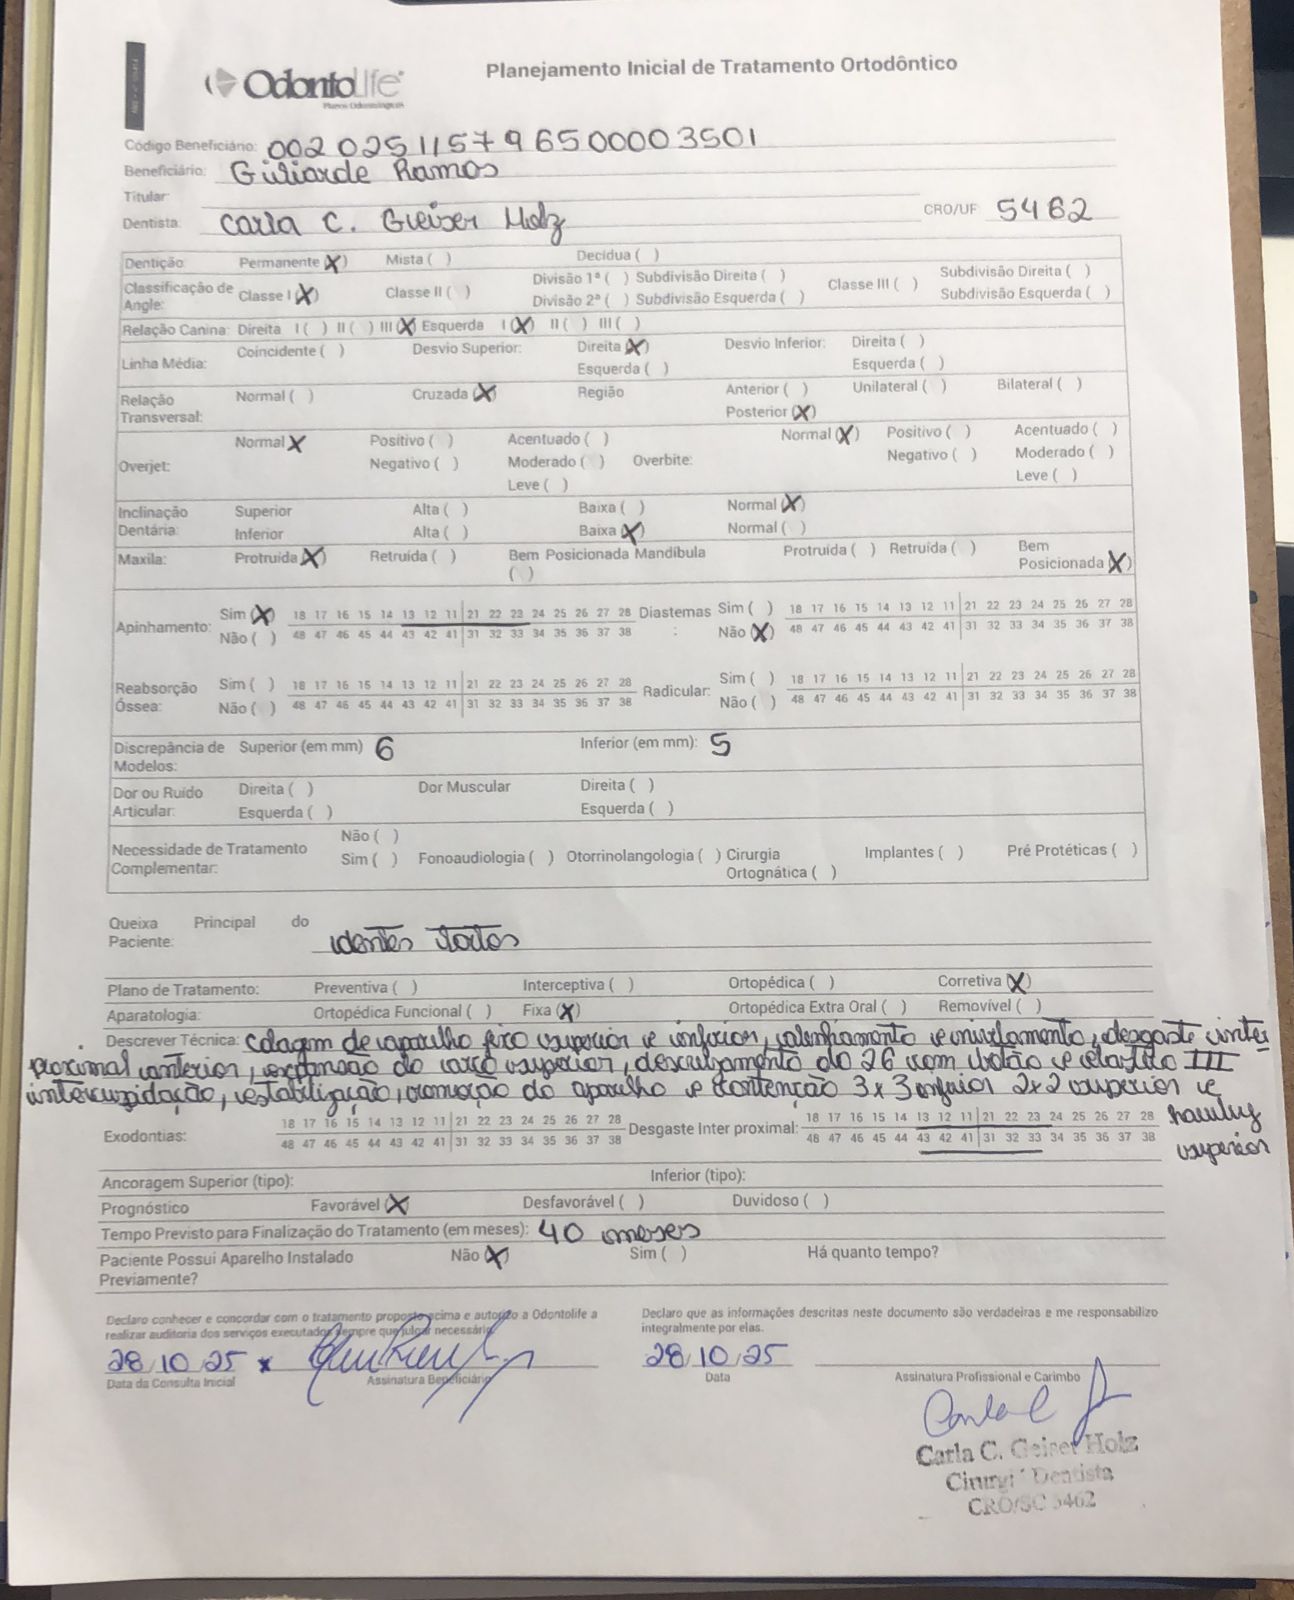 OdontoLife
Planos Odontológicos
Planejamento Inicial de Tratamento Ortodôntico
Código Beneficiário: 002025115796500003501
Beneficiário: Giliarde Ramos
Titular:
Dentista: Carla C. Greiser Holz CRO/UF 5462
Dentição: Permanente (X) Mista ( ) Decídua ( )
Classificação de Angle: Classe I (X) Classe II ( ) Divisão 1ª ( ) Subdivisão Direita ( ) Classe III ( ) Subdivisão Direita ( )
Divisão 2ª ( ) Subdivisão Esquerda ( ) Subdivisão Esquerda ( )
Relação Canina: Direita I ( ) II ( ) III (X) Esquerda I (X) II ( ) III ( )
Linha Média: Coincidente ( ) Desvio Superior: Direita (X) Desvio Inferior: Direita ( )
Esquerda ( ) Esquerda ( )
Relação Transversal: Normal ( ) Cruzada (X) Região Anterior ( ) Unilateral ( ) Bilateral ( )
Posterior (X)
Overjet: Normal X Positivo ( ) Acentuado ( ) Overbite: Normal (X) Positivo ( ) Acentuado ( )
Negativo ( ) Moderado ( ) Negativo ( ) Moderado ( )
Leve ( ) Leve ( )
Inclinação Dentária: Superior Alta ( ) Baixa ( ) Normal (X)
Inferior Alta ( ) Baixa (X) Normal ( )
Maxila: Protruída (X) Retruída ( ) Bem Posicionada ( ) Mandíbula Protruída ( ) Retruída ( ) Bem Posicionada (X)
Apinhamento: Sim (X) 18 17 16 15 14 13 12 11 21 22 23 24 25 26 27 28 Diastemas : Sim ( ) 18 17 16 15 14 13 12 11 21 22 23 24 25 26 27 28
Não ( ) 48 47 46 45 44 43 42 41 31 32 33 34 35 36 37 38 Não (X) 48 47 46 45 44 43 42 41 31 32 33 34 35 36 37 38
Reabsorção Óssea: Sim ( ) 18 17 16 15 14 13 12 11 21 22 23 24 25 26 27 28 Radicular: Sim ( ) 18 17 16 15 14 13 12 11 21 22 23 24 25 26 27 28
Não ( ) 48 47 46 45 44 43 42 41 31 32 33 34 35 36 37 38 Não ( ) 48 47 46 45 44 43 42 41 31 32 33 34 35 36 37 38
Discrepância de Modelos: Superior (em mm) 6 Inferior (em mm): 5
Dor ou Ruido Articular: Direita ( ) Dor Muscular Direita ( )
Esquerda ( ) Esquerda ( )
Necessidade de Tratamento Complementar: Não ( )
Sim ( ) Fonoaudiologia ( ) Otorrinolangologia ( ) Cirurgia Ortognática ( ) Implantes ( ) Pré Protéticas ( )
Queixa Principal do Paciente: dentes tortos
Plano de Tratamento: Preventiva ( ) Interceptiva ( ) Ortopédica ( ) Corretiva (X)
Aparatologia: Ortopédica Funcional ( ) Fixa (X) Ortopédica Extra Oral ( ) Removível ( )
Descrever Técnica: colagem de aparelho fixo superior e inferior, alinhamento e nivelamento, desgaste inter
proximal anterior, expansão do arco superior, descruzamento do 26 com botão e elastico III
intercuspidação, estabilização, remoção do aparelho e contenção 3x3 inferior 2x2 superior e
hawley
superior
Exodontias: 18 17 16 15 14 13 12 11 21 22 23 24 25 26 27 28 Desgaste Inter proximal: 18 17 16 15 14 13 12 11 21 22 23 24 25 26 27 28
48 47 46 45 44 43 42 41 31 32 33 34 35 36 37 38 48 47 46 45 44 43 42 41 31 32 33 34 35 36 37 38
Ancoragem Superior (tipo): Inferior (tipo):
Prognóstico Favorável (X) Desfavorável ( ) Duvidoso ( )
Tempo Previsto para Finalização do Tratamento (em meses): 40 meses
Paciente Possui Aparelho Instalado Previamente? Não (X) Sim ( ) Há quanto tempo?
Declaro conhecer e concordar com o tratamento proposto acima e autorizo a Odontolife a
realizar auditoria dos serviços executados sempre que julgar necessário.
Declaro que as informações descritas neste documento são verdadeiras e me responsabilizo
integralmente por elas.
28/10/25 x 28/10/25
Data da Consulta Inicial Assinatura Beneficiário Data Assinatura Profissional e Carimbo
Carla C. Geiser Holz
Dentista
CRO/SC 5462